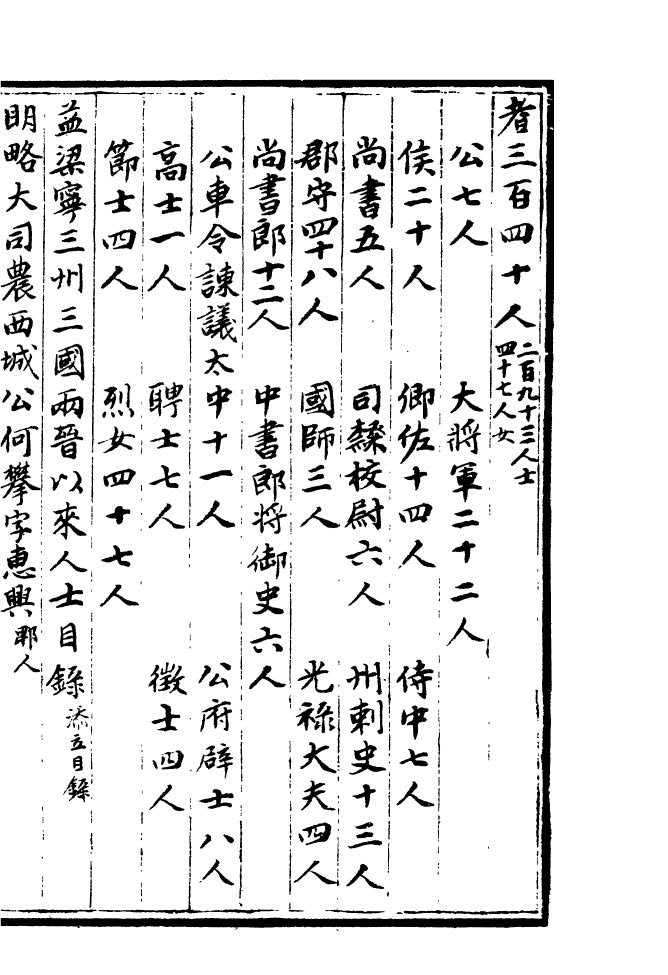 者三百四十人二百九十三人士四十七人女
公七人　大將軍二十二人
侯二十人　卿佐十四人　侍中七人
尚書五人　司隸校尉六人　州刺史十三人
郡守四十八人　國師三人　光祿大夫四人
尚書郎十二人　中書郎將御史六人
公車令諫議太中十一人　公府辟士八人
高士一人　聘士七人　徵士四人
節士四人　烈女四十七人
益梁寧三州三國兩晉以來人士目錄添立目錄
明略大司農西城公何攀字惠興郫人